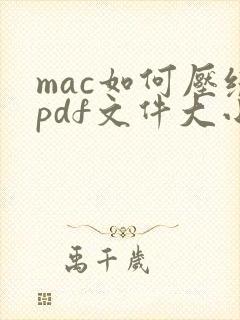 mac如何壓縮
pdf文件大小
禹千歲